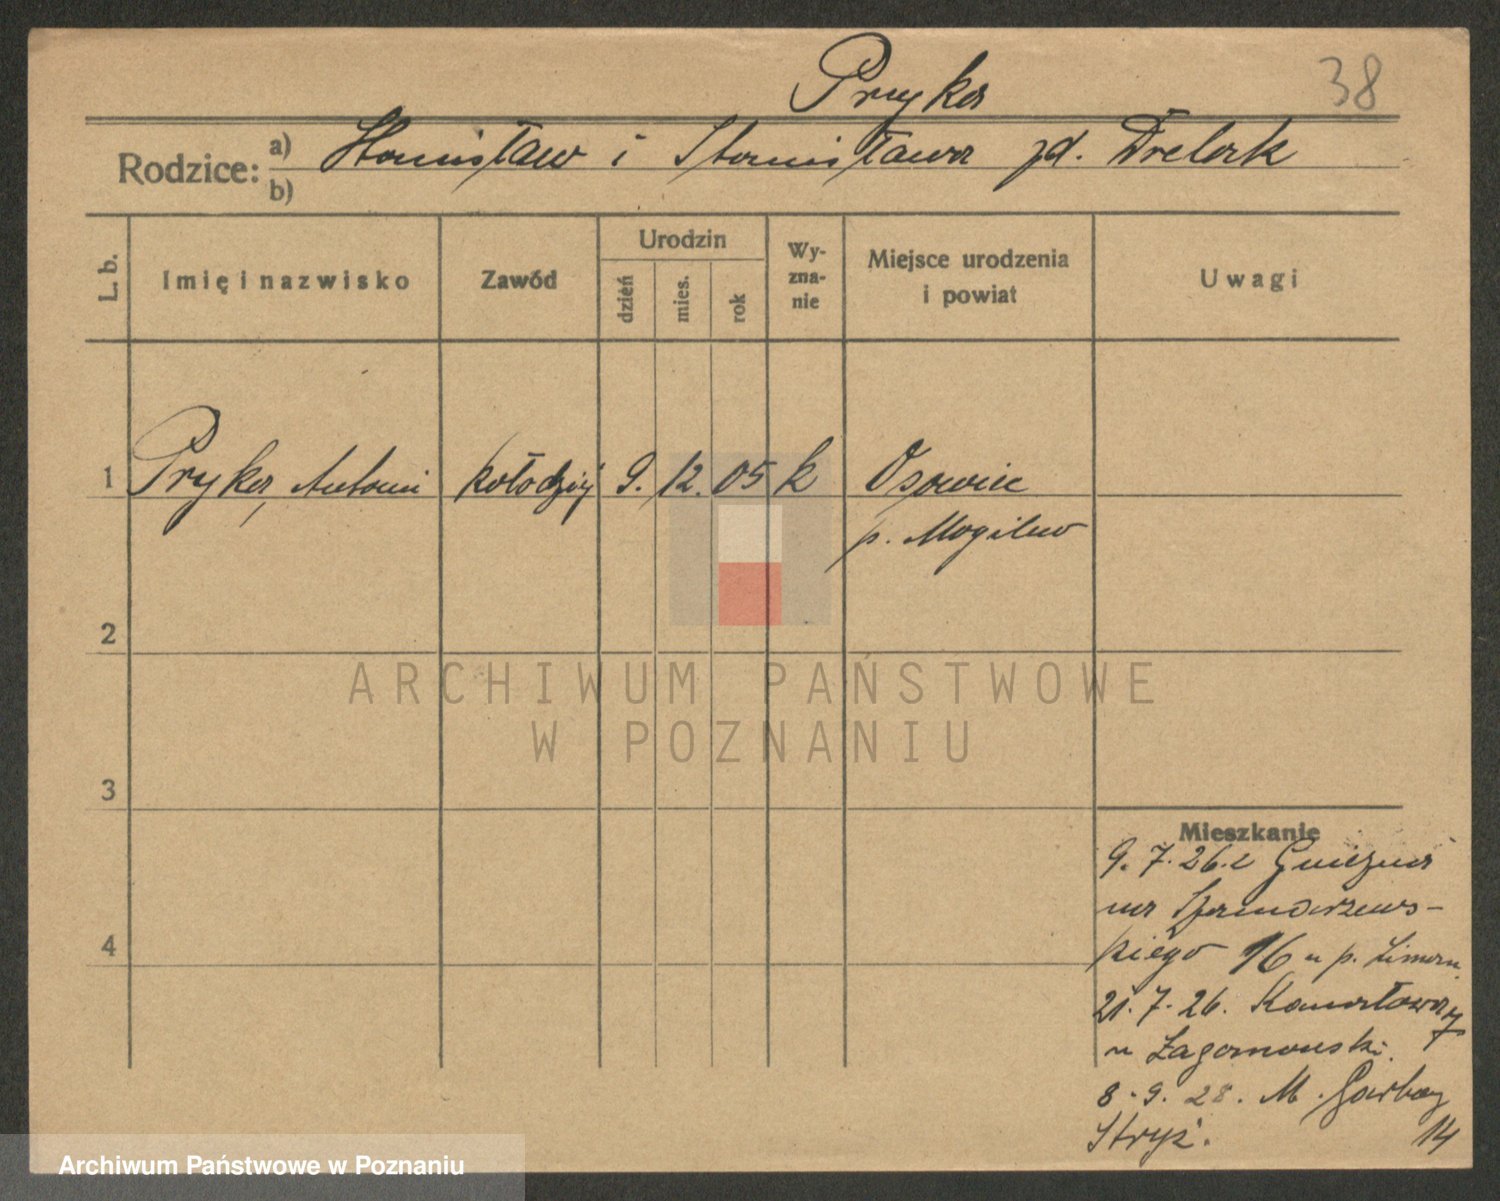 Pryka
38
Rodzice: a) Stanisław i Stanisława zd. Drelak
b)
L. b.
Imię i nazwisko
Zawód
Urodzin
dzień
mies.
rok
Wy-
zna-
nie
Miejsce urodzenia
i powiat
Uwagi
1 Pryka, Antoni kołodziej 9. 12. 05 k Osowiec
p. Mogilno
2
ARCHIWUM PAŃSTWOWE
W POZNANIU
3
Mieszkanie
9.7.26. z Gniezna
na
kiego 16 u p.
4
21.7.26. Kanałowa 7
u
8.9.28. M. Garbary
14
Archiwum Państwowe w Poznaniu